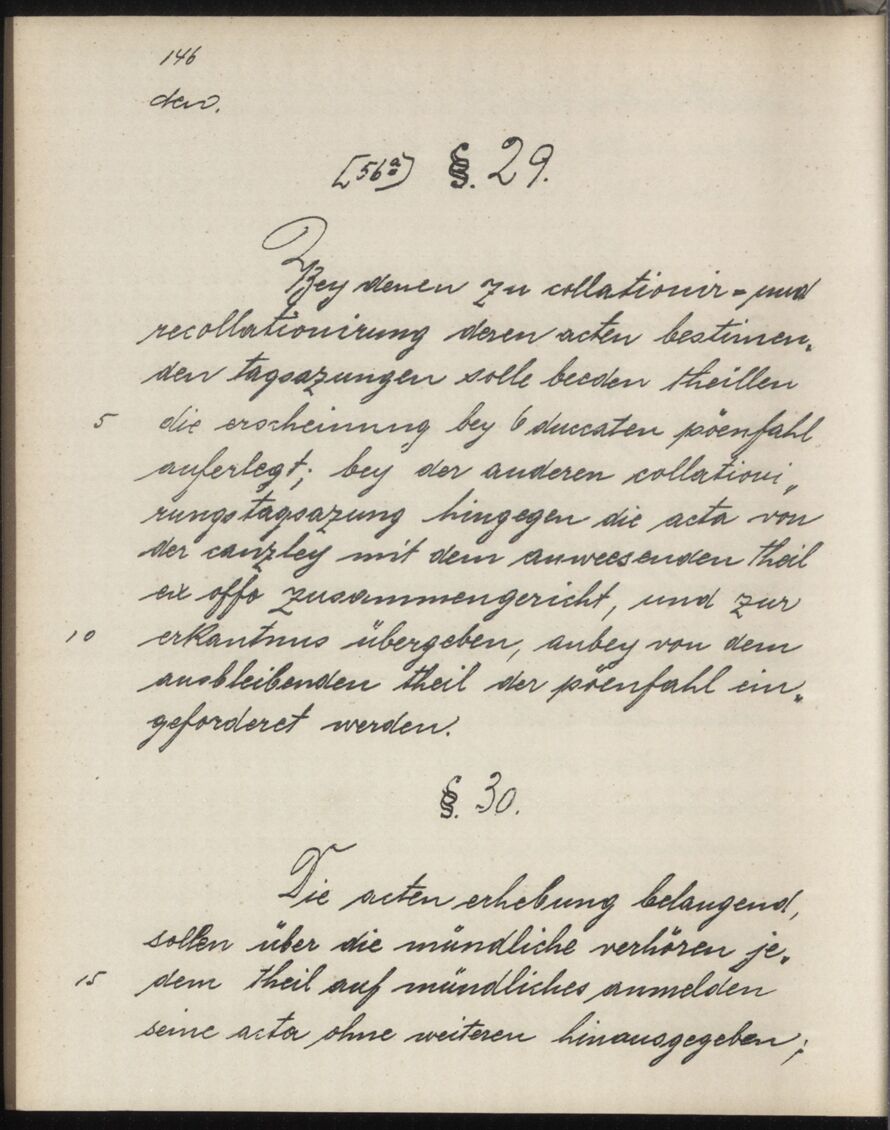 146
den.
[56a) §. 29.
Bey denen zu collationir- und
recollationirung deren acten bestimen„
den tagsazungen solle beeden theillen
5 die erscheinung bey 6 duccaten pöenfahl
auferlegt; bey der anderen collationi„
rungstagsazung hingegen die acta von
der canzley mit dem anweesenden theil
ex offo zusammengericht, und zur
10 erkantnus übergeben, anbey von dem
ausbleibenden theil der pöenfahl ein„
geforderet werden.
§. 30.
Die acten erhebung belangend,
sollen über die mündliche verhören je„
15 dem theil auf mündliches anmelden
seine acta ohne weiteren hinausgegeben;